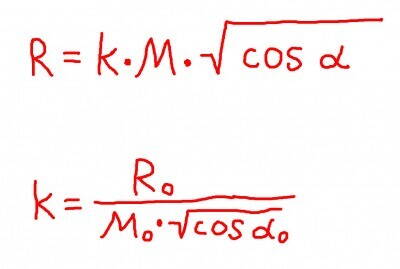 R = k · M · √cos α
k = R₀ / M₀ · √cos α₀